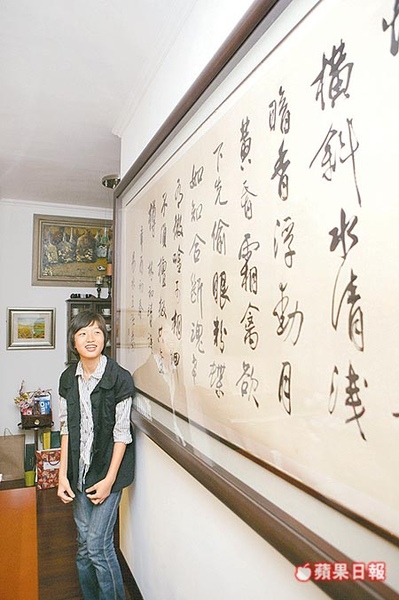 橫斜水清淺
暗香浮動月
黃昏霜禽欲
下先偷眼粉蝶
如知合斷魂幸
有微吟可相
不須檀板共
樽
蘋果日報